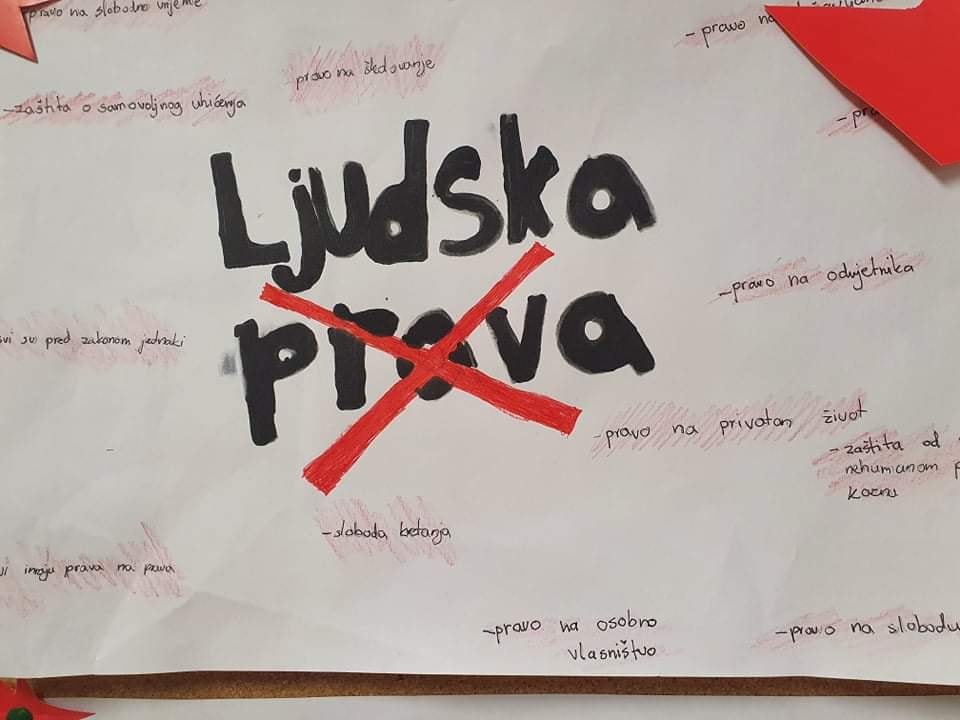 pravo na slobodno vrijeme
- pravo na
pravo na školovanje
- zaštita o samovoljnog uhićenja
Ljudska
prava
- pravo na odvjetnika
svi su pred zakonom jednaki
- pravo na privatan život
- zaštita od
nehumanom
kaznu
- sloboda kretanja
imaju prava na prava
- pravo na osobno
vlasništvo
- pravo na slobodu